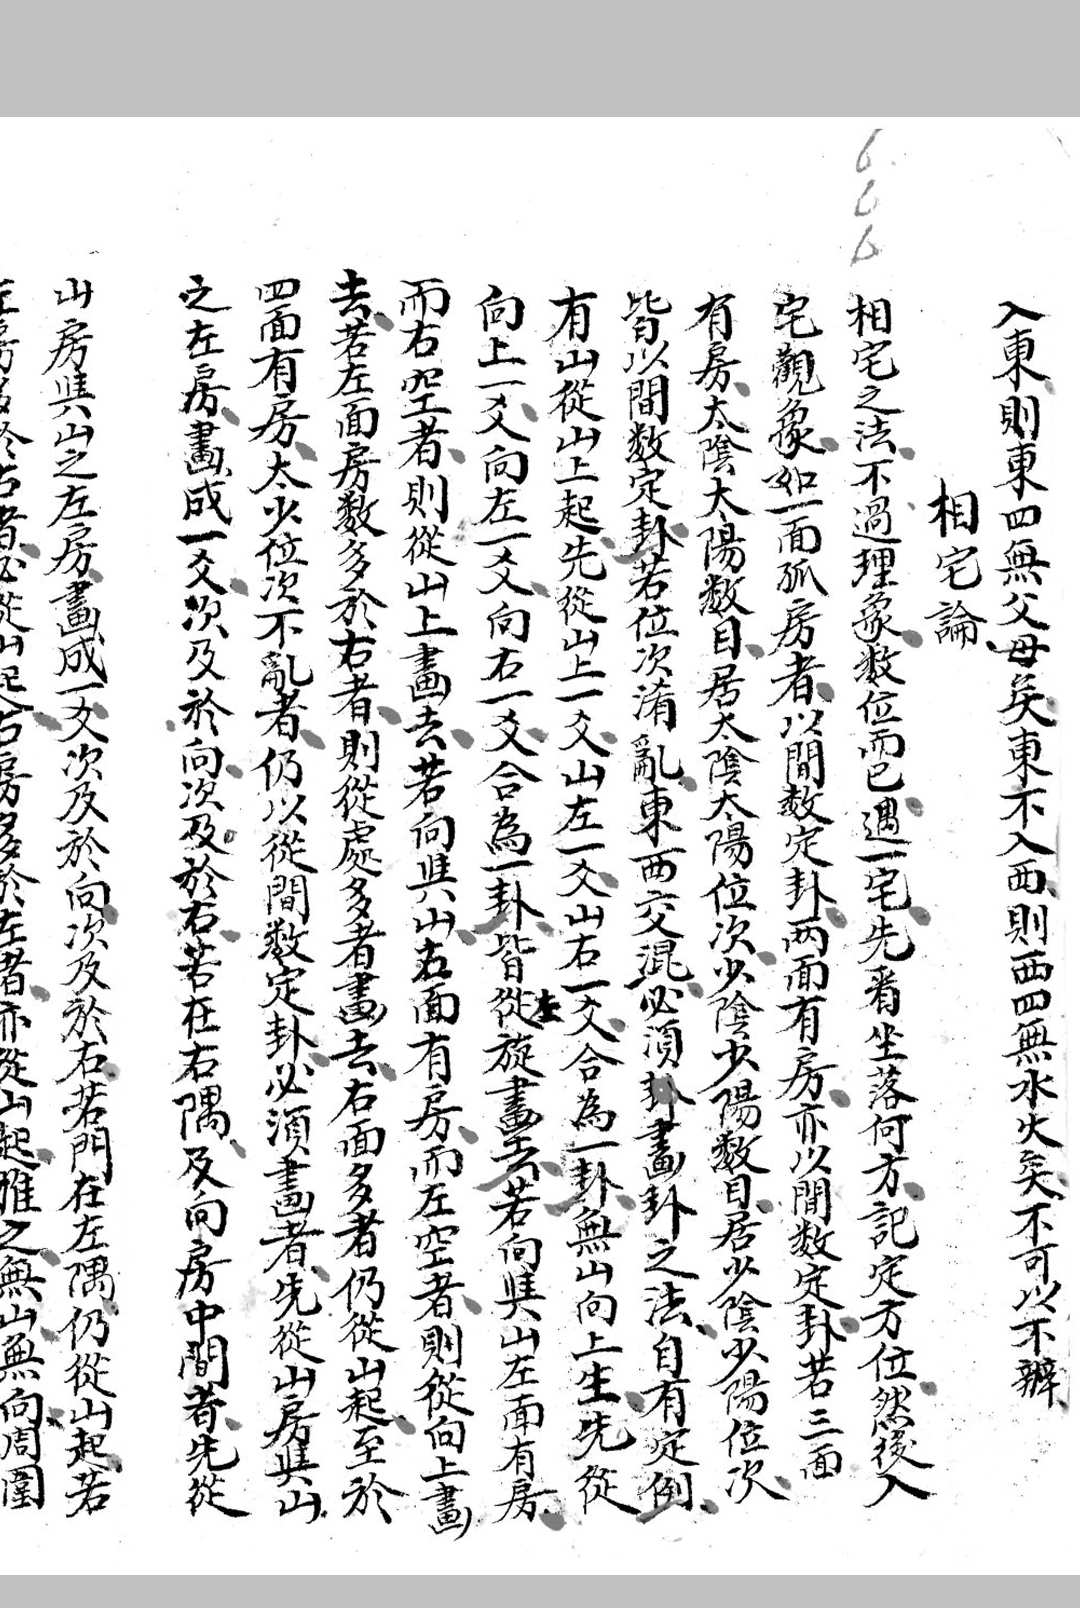 入東則東四無父母矣東不入西則西四無水火矣不可以不辦
相宅論
相宅之法不過理象数位而已遇一宅先看坐落何方記定方位然後入
宅觀象如一面孤房者以間数定卦两面有房亦以間数定卦若三面
有房太陰太陽数目居太陰太陽位次少陰少陽数目居少陰少陽位次
皆以間数定卦若位次淆亂東西交混必須卦畫卦之法自有定例
有山從山上起先從山上一爻山左一爻山右一爻合為一卦無山向上生先從
向上一爻向左一爻向右一爻合為一卦皆從左旋畫去若向與山左面有房
而右空者則從山上畫去若向與山右面有房而左空者則從向上畫
去若左面房数多於右者則從處多者畫去右面多者仍從山起至於
四面有房太少位次不亂者仍以從間数定卦必須畫者先從山房與山
之左房畫成一爻次及於向次及於右若在右隅及向房中間者先從
山房與山之左房畫成一爻次及於向次及於右若門在左隅仍從山起若
左房多於右者必從山起右房多於左者亦從山起雅之無山無向周圍